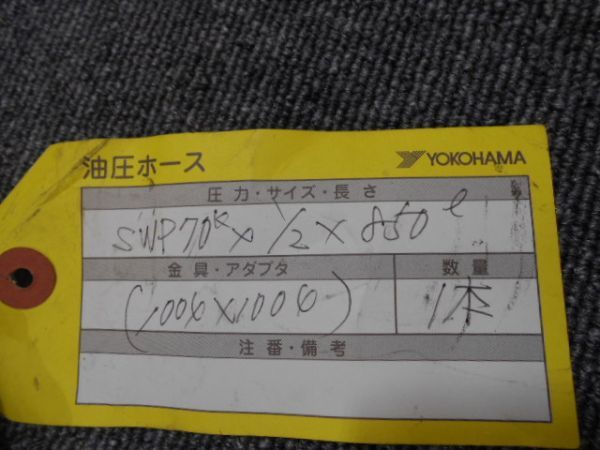 油圧ホース
YOKOHAMA
圧力・サイズ・長さ
SWP70K × 1/2 × 850 l
金具・アダプタ
数量
(1004×1004)
1本
注番・備考